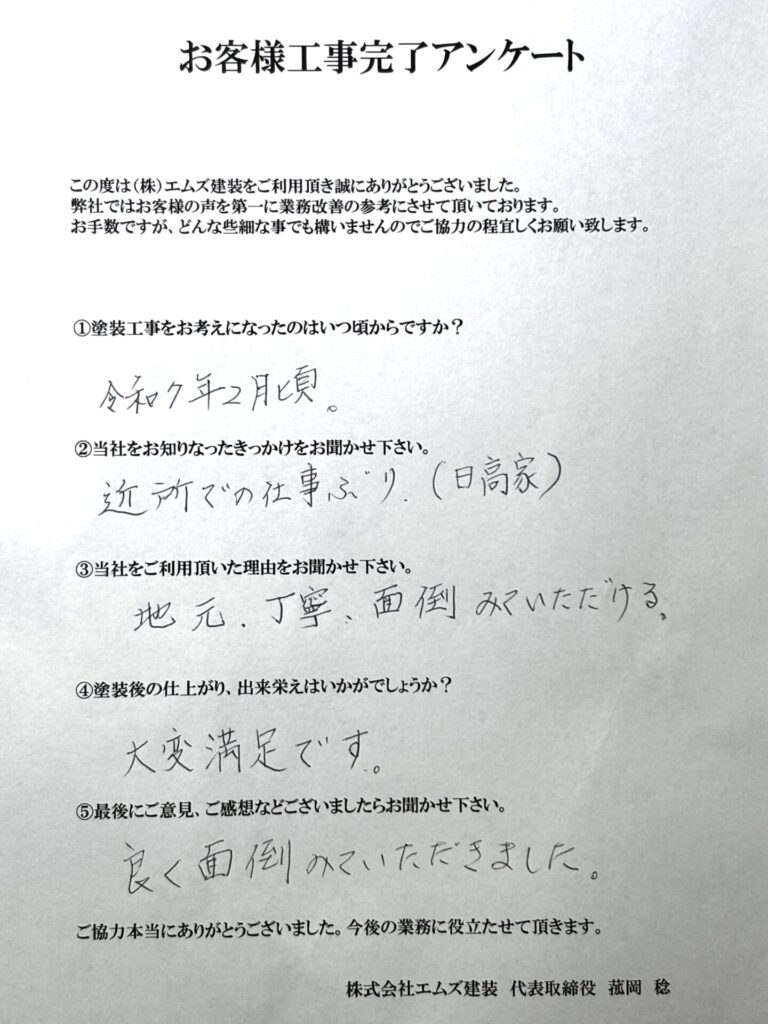 お客様工事完了アンケート
この度は(株)エムズ建装をご利用頂き誠にありがとうございました。
弊社ではお客様の声を第一に業務改善の参考にさせて頂いております。
お手数ですが、どんな些細な事でも構いませんのでご協力の程宜しくお願い致します。
①塗装工事をお考えになったのはいつ頃からですか?
令和7年2月頃。
②当社をお知りなったきっかけをお聞かせ下さい。
近所での仕事ぶり.(日高家)
③当社をご利用頂いた理由をお聞かせ下さい。
地元、丁寧、面倒みていただける。
④塗装後の仕上がり、出来栄えはいかがでしょうか?
大変満足です。
⑤最後にご意見、ご感想などございましたらお聞かせ下さい。
良く面倒みていただきました。
ご協力本当にありがとうございました。今後の業務に役立たせて頂きます。
株式会社エムズ建装 代表取締役 菰岡 稔